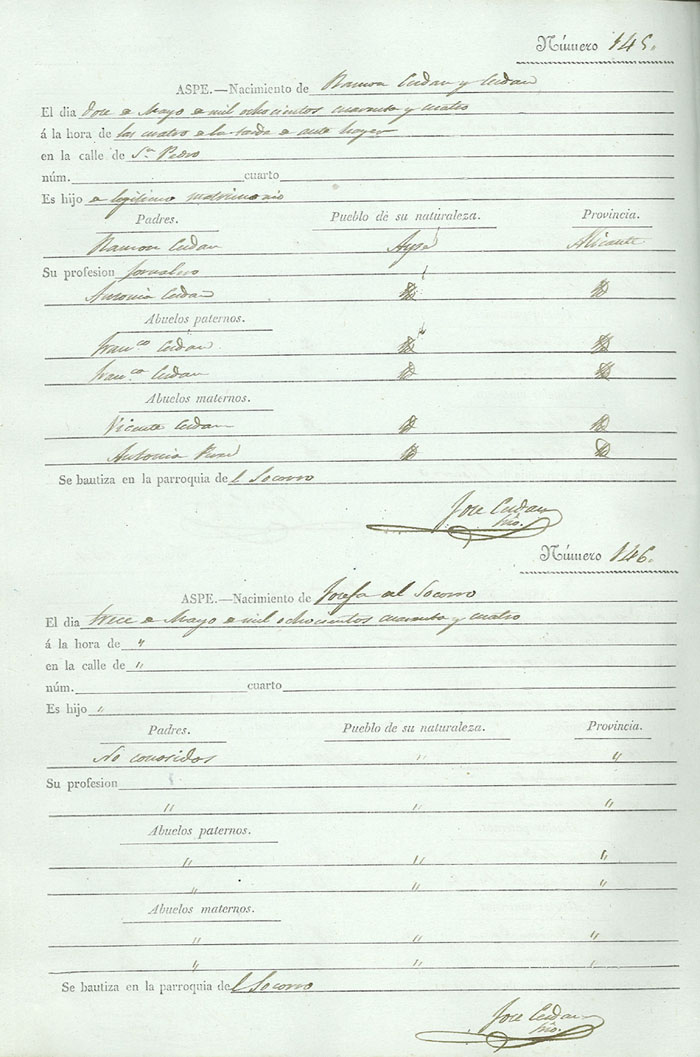 Número 145.
ASPE.—Nacimiento de Ramon Cerdan y Cerdan
El dia Doce de Mayo de mil ochocientos cuarenta y cuatro
á la hora de las cuatro de la tarde de ante hayer
en la calle de Sn Pedro
núm. cuarto
Es hijo de legitimo matrimonio
Padres. Pueblo de su naturaleza. Provincia.
Ramon Cerdan Aspe Alicante
Su profesion Jornalero
Antonia Cerdan Id Id
Abuelos paternos.
Franco Cerdan Id Id
Franca Cerdan Id Id
Abuelos maternos.
Vicente Cerdan Id Id
Antonia Id Id
Se bautiza en la parroquia del Socorro
Jose Cerdan
Número 146.
ASPE.—Nacimiento de Josefa del Socorro
El dia trece de Mayo de mil ochocientos cuarenta y cuatro
á la hora de "
en la calle de "
núm. cuarto
Es hijo "
Padres. Pueblo de su naturaleza. Provincia.
No conosidos " "
Su profesion
" " "
Abuelos paternos.
" " "
" " "
Abuelos maternos.
" " "
" " "
Se bautiza en la parroquia del Socorro
Jose Cerdan